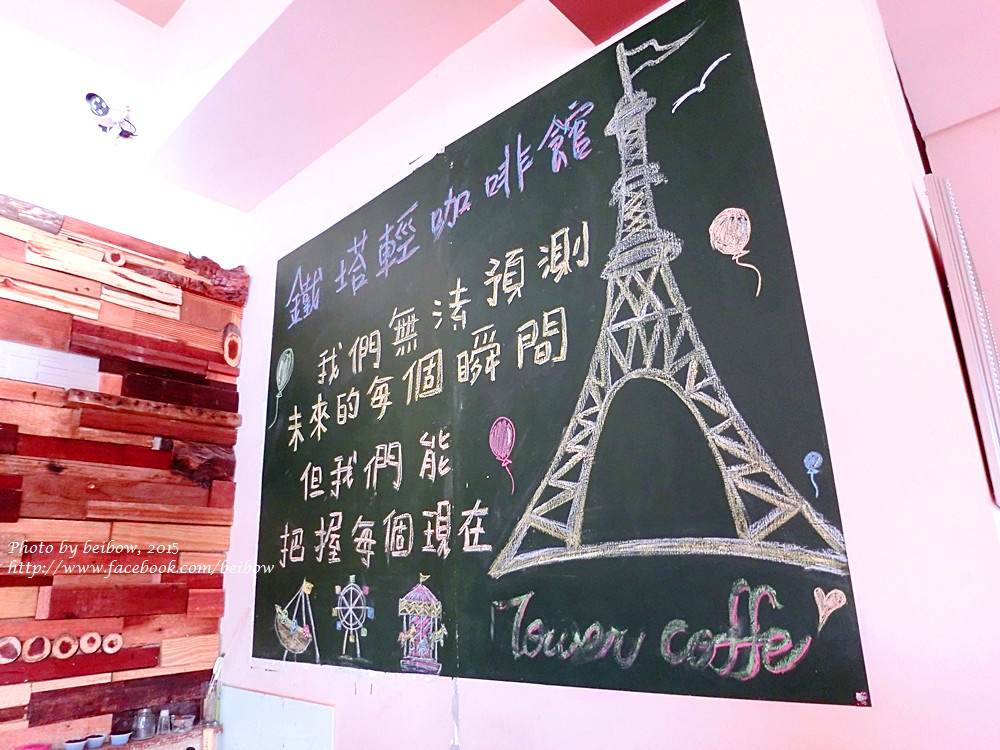 鐵塔輕咖啡館
我們無法預測
未來的每個瞬間
但我們能
把握每個現在
Tower coffe
Photo by beibow, 2015
http://www.facebook.com/beibow